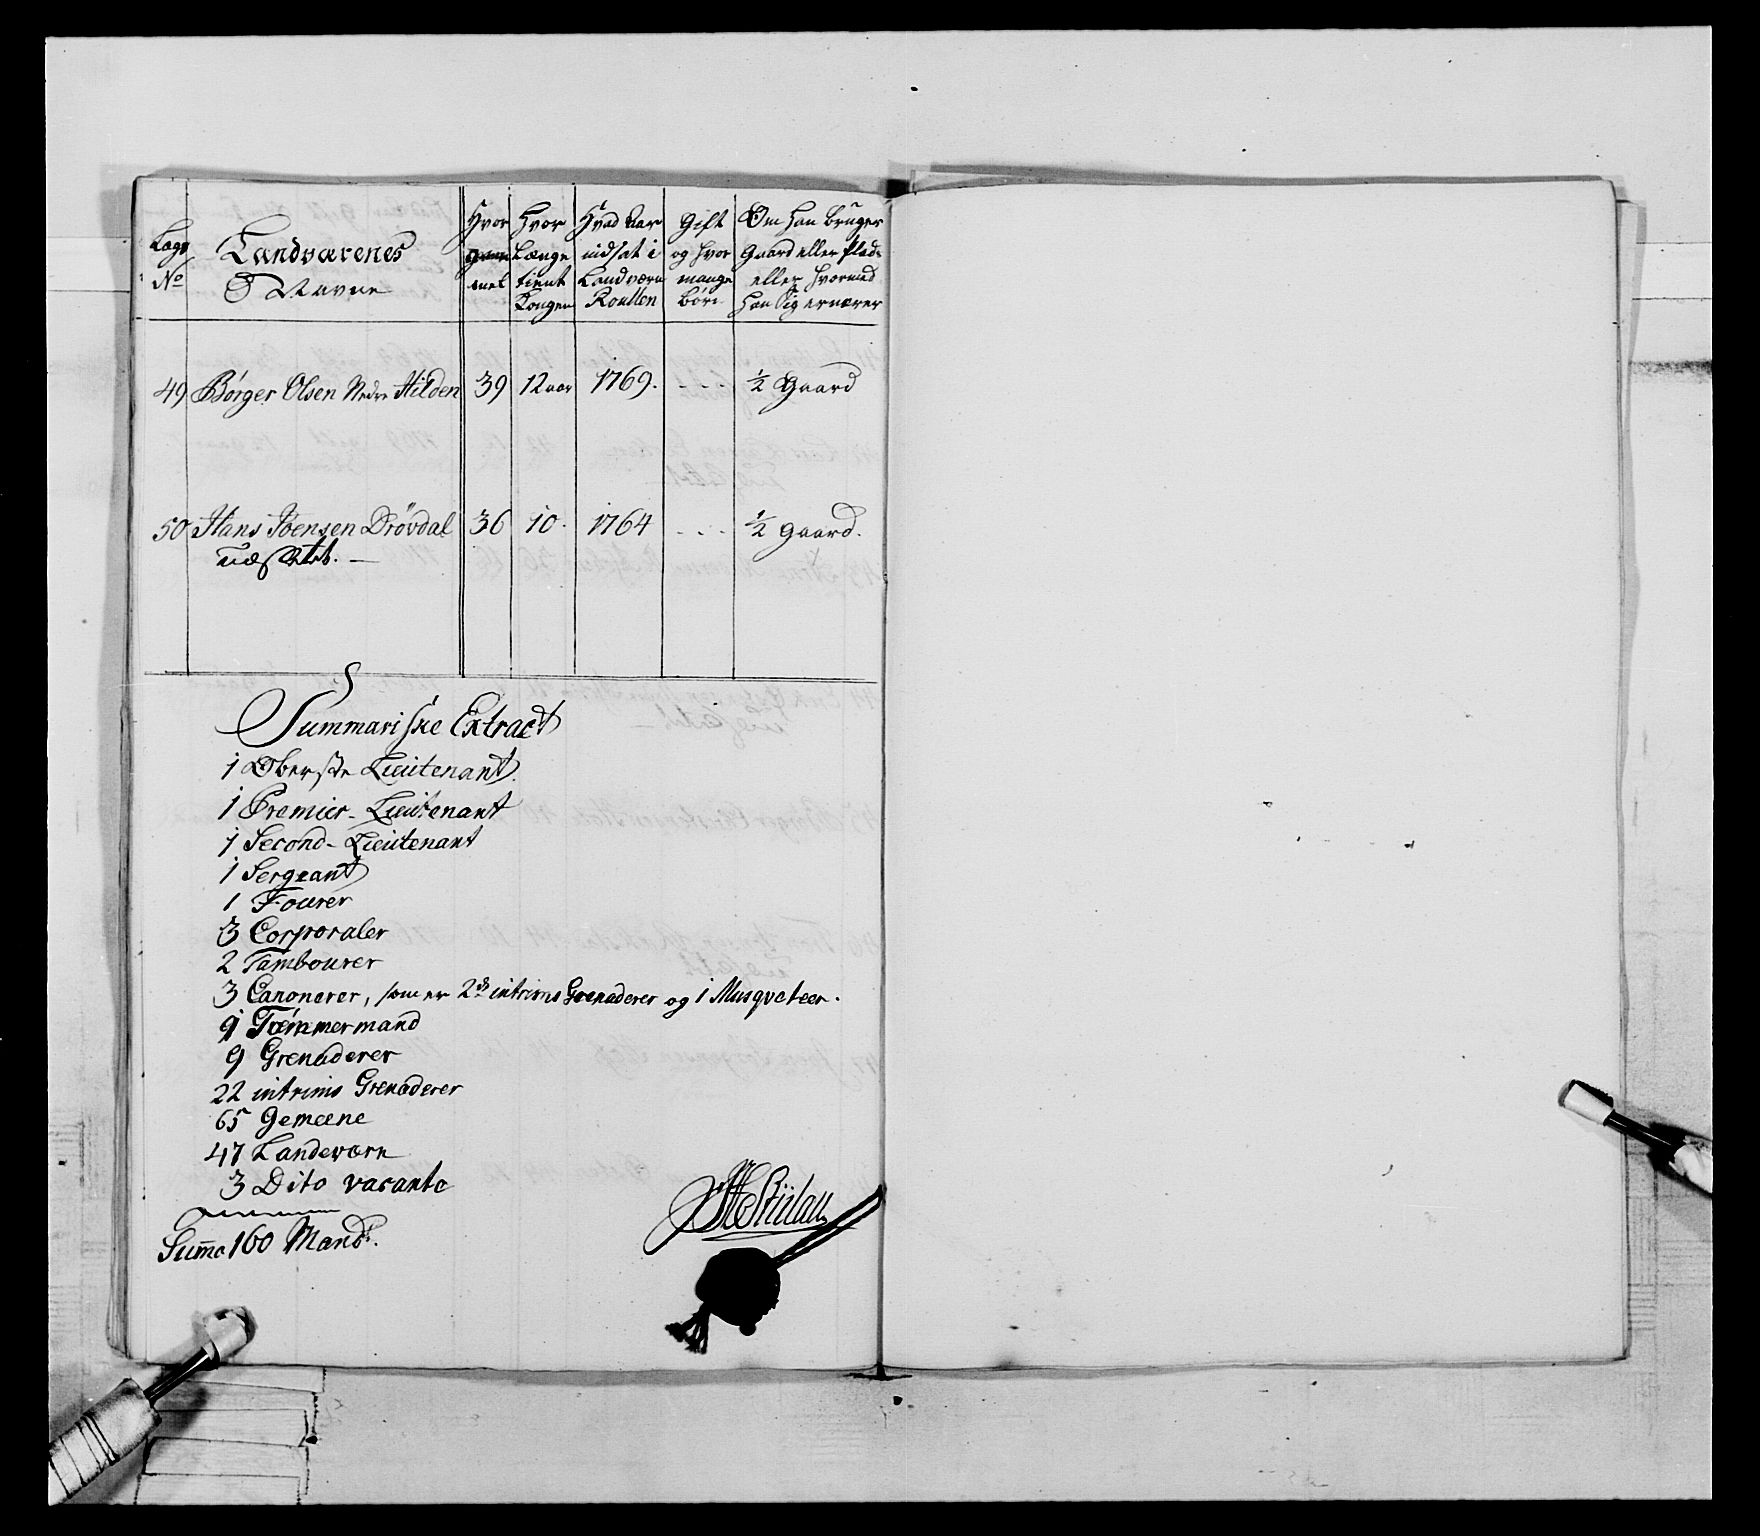 Lægs No
Landværenes Navne
Hvor gammel
Hvor Længe tient Kongen
Hvad Aar indsat i Landværn Roullen
Gift og hvor mange børn
Om han bruger Gaard eller Plads eller hvormed han Sig ernærer
49 Børger Olsen Nedre Hilden 39 12 aar 1769. - - - ½ Gaard
50 Hans Joensen Drövdal 36 10. 1764 - - - ½ gaard.
udslettet. —
Summariske Extract
1 Oberste Lieutenant.
1 Premier-Lieutenant
1 Second-Lieutenant
1 Sergeant
1 Fourer
3 Corporaler
2 Tambourer
3 Canonerer, som er 2de intrims Grenaderer og 1 Musqveteer.
1 Tømmermand
9 Grenaderer
22 intrims Grenaderer
65 Gemeene
47 Landeværn
3 Dito vacante
Suma 160 Mand.